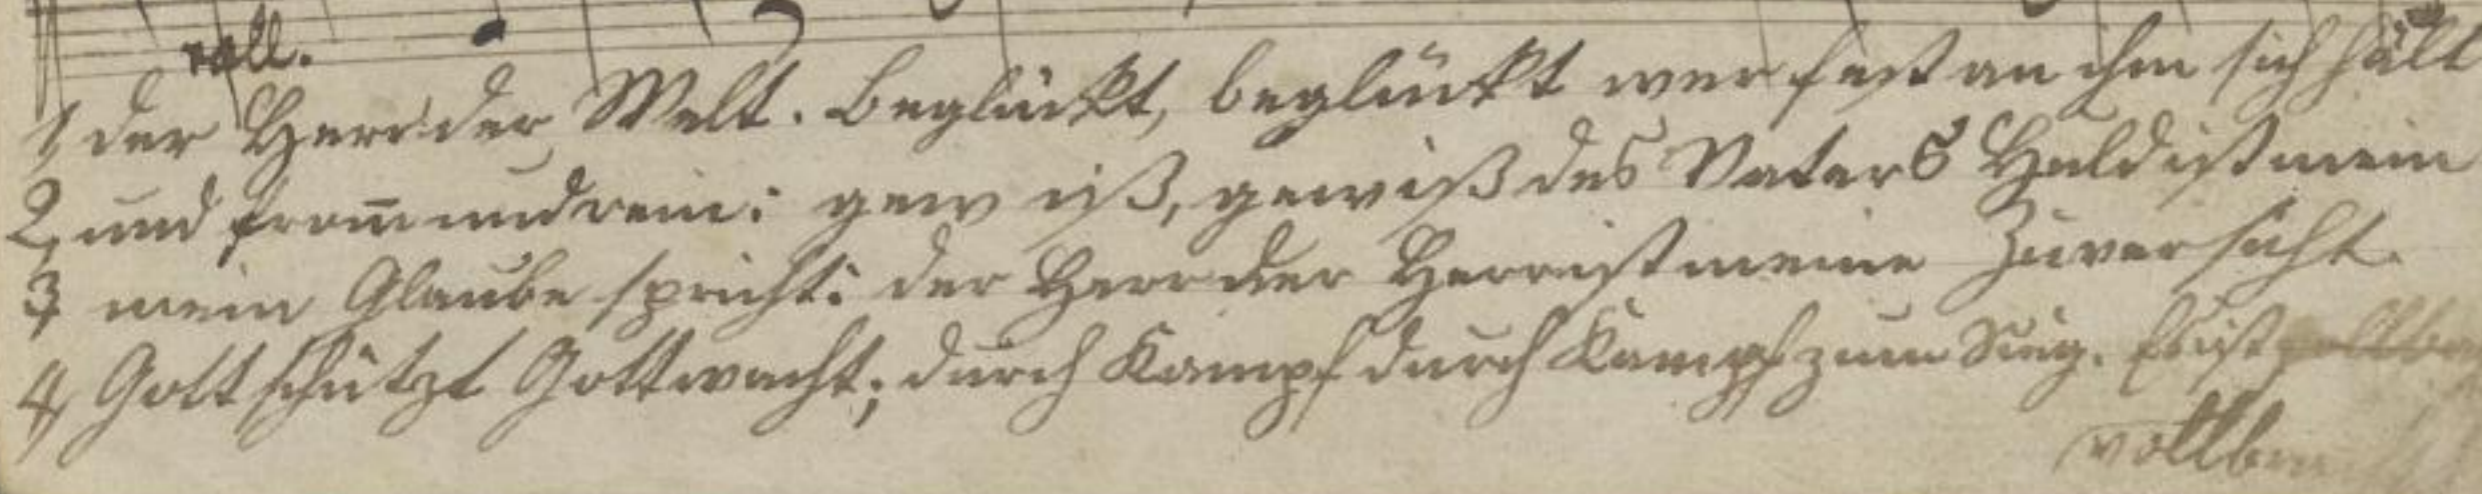 voll.
1 der Herr der Welt. Beglückt, beglückt wer fest an ihm sich hält
2, und from̅ und rein: gew iß, gewiß des Vaters Huld ist mein
3 mein Glaube spricht: der Herr der Herr ist meine Zuversicht.
4, Gott schützt Gott wacht; durch Kampf durch Kampf zum Sieg. Es ist
vollbra